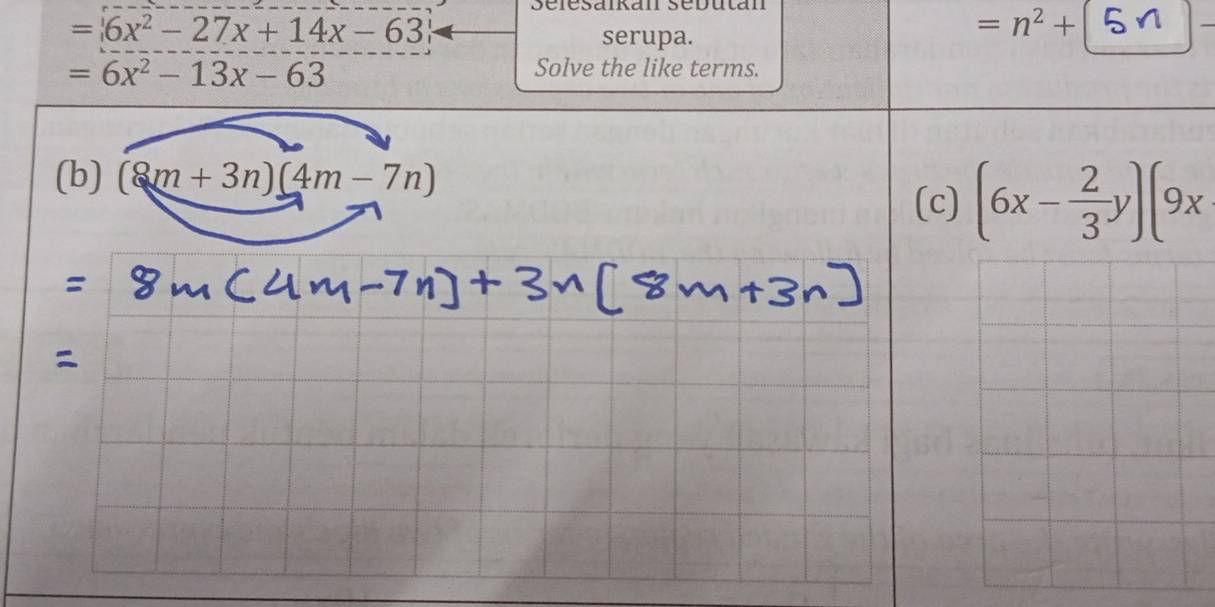 = 6x² − 27x + 14x − 63
= 6x² − 13x − 63
Selesaikan sebutan
serupa.
Solve the like terms.
= n² + 5n −
(b) (8m + 3n)(4m − 7n)
= 8m(4m-7n)+3n(8m+3n)
=
(c) (6x − 2/3 y)(9x